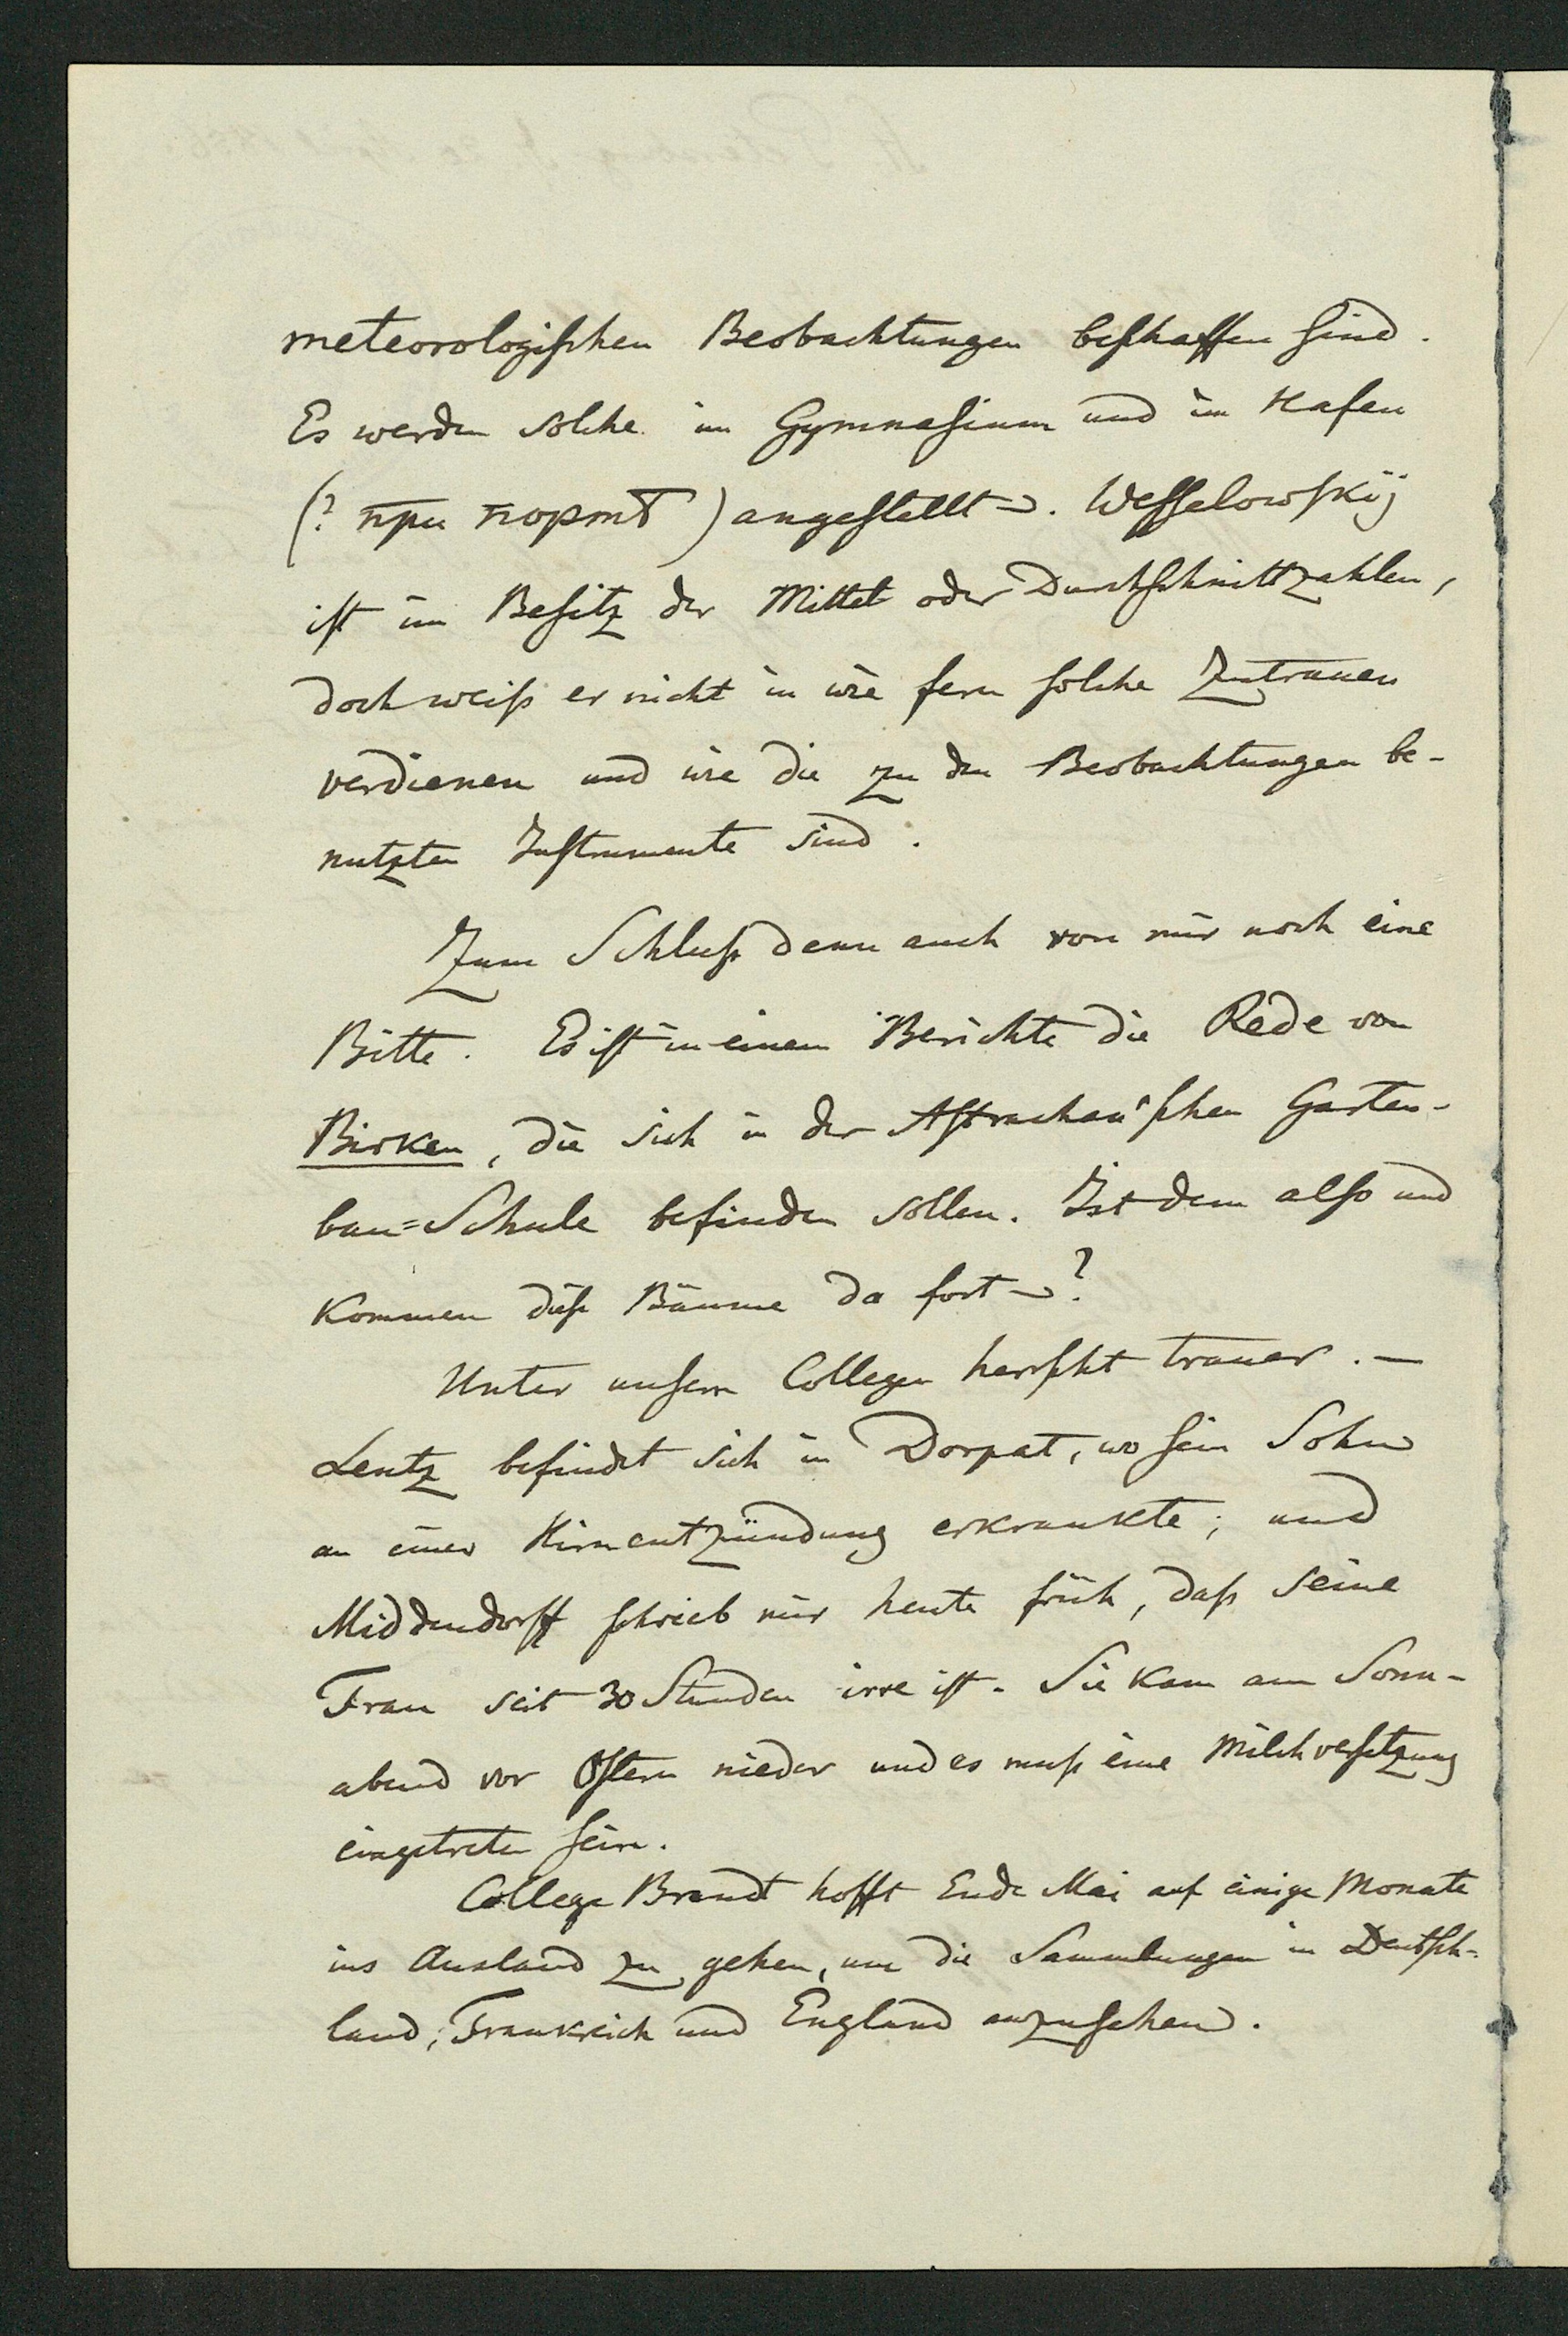 meteorologischen Beobachtungen beschaffen sind.
Es werden solche im Gymnasium und im Hafen
(? при портѣ) angestellt. Wesselowskij
ist im Besitz der Mittel oder Durchschnittzahlen,
doch weiß er nicht in wie fern solche Zutrauen
verdienen und wie die zu den Beobachtungen be-
nutzten Instrumente sind.
Zum Schluß denn auch von mir noch eine
Bitte. Es ist in einem Berichte die Rede von
Birken, die sich in der Astrachan'schen Garten-
bau=Schule befinden sollen. Ist dem also und
kommen diese Bäume da fort?
Unter unsern Collegen herrscht trauer. —
Lentz befindet sich in Dorpat, wo sein Sohn
an einer Hirnentzündung erkrankte; und
Middendorff schrieb mir heute früh, daß seine
Frau seit 30 Stunden irre ist. Sie kam am Sonn-
abend vor Ostern nieder und es muß eine Milchversetzung
eingetreten sein.
College Brandt hofft Ende Mai auf einige Monate
ins Ausland zu gehen, um die Sammlungen in Deutsch-
land, Frankreich und England anzusehen.